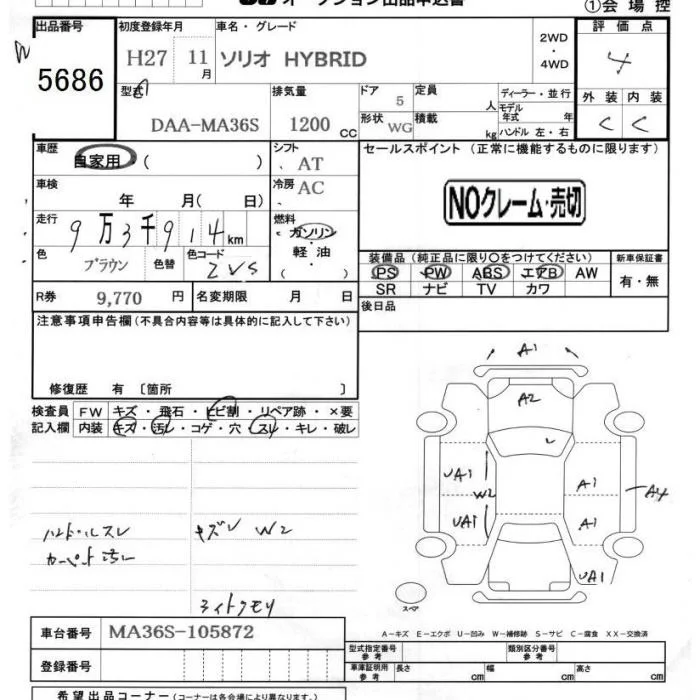 オークション出品申込書
①会場控
出品番号 初度登録年月 車名・グレード 評価点
5686 H27 11月 ソリオ HYBRID 2WD・4WD 4
型式 排気量 ドア 定員 ディーラー・並行 外装 内装
DAA-MA36S 1200CC 5 人 モデル年式 年 C C
形状 WG 積載 kg ハンドル 左・右
車歴 シフト セールスポイント(正常に機能するものに限ります)
自家用( ) AT
車検 冷房 AC
年 月(日) NOクレーム・売切
走行 燃料
9万3千914km ガソリン・軽油( )
色 色替 色コード 装備品(純正品に限り○をつけてください) 新車保証書
ブラウン ZVS PS PW ABS エアB AW 有・無
SR ナビ TV カワ
R券 9,770 円 名変期限 月 日 後日品
注意事項申告欄(不具合内容等は具体的に記入して下さい)
修復歴 有〔箇所 〕
検査員 FW キズ・飛石・ヒビ割・リペア跡・×要
記入欄 内装 キズ・汚レ・コゲ・穴・スレ・キレ・破レ
A1
A2
UA1 W2 A1 A4
UA1 A1
UA1
ハンドルスレ キズレ W2
カーペット汚レ
ライトクモリ
スペア
A-キズ E-エクボ U-凹み W-補修跡 S-サビ C-腐食 XX-交換済
車台番号 MA36S-105872
型式指定番号 参考 類別区分番号 参考
登録番号 車庫証明用 参考 長さ cm 幅 cm 高さ cm
希望出品コーナー(コーナーは各会場により異なります。)